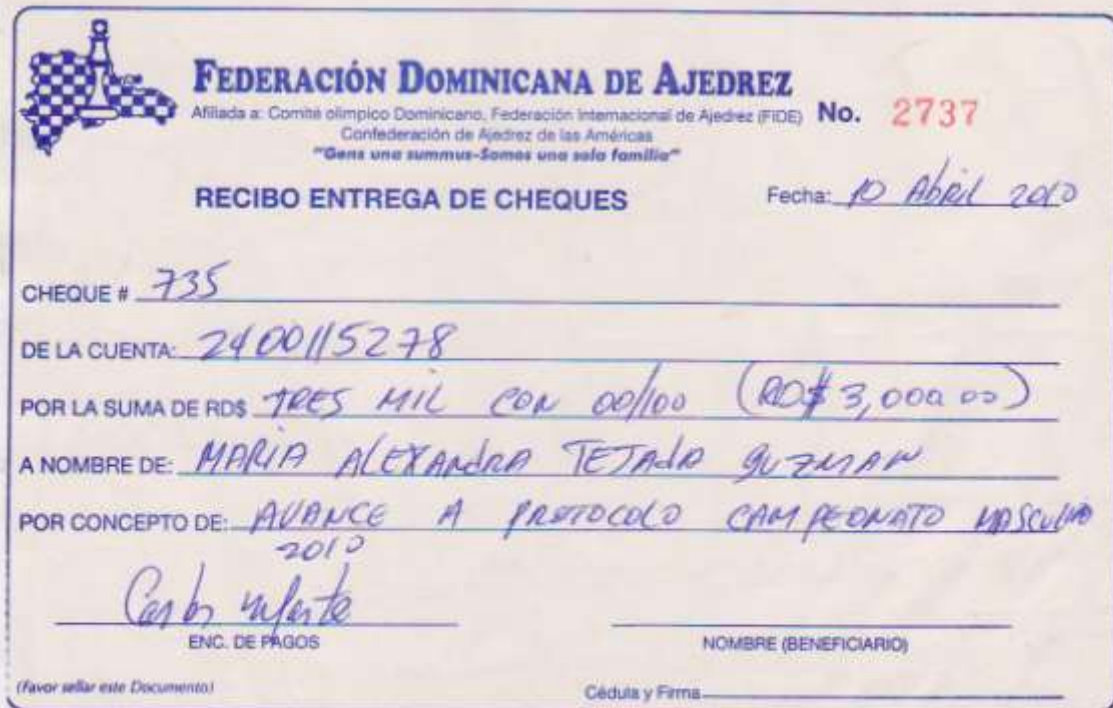 FEDERACIÓN DOMINICANA DE AJEDREZ
Afiliada a: Comité olímpico Dominicano, Federación Internacional de Ajedrez (FIDE) No. 2737
Confederación de Ajedrez de las Américas
"Gens una summus-Somos una sola familia"
RECIBO ENTREGA DE CHEQUES
Fecha: 10 Abril 2010
CHEQUE # 735
DE LA CUENTA: 2400115278
POR LA SUMA DE RD$ TRES MIL CON 00/100 (RD$ 3,000.00)
A NOMBRE DE: MARIA ALEXANDRA TEJADA GUZMAN
POR CONCEPTO DE: AVANCE A PROTOCOLO CAMPEONATO MASCULINO
2010
Carlos Infante
ENC. DE PAGOS
NOMBRE (BENEFICIARIO)
(Favor sellar este Documento)
Cédula y Firma